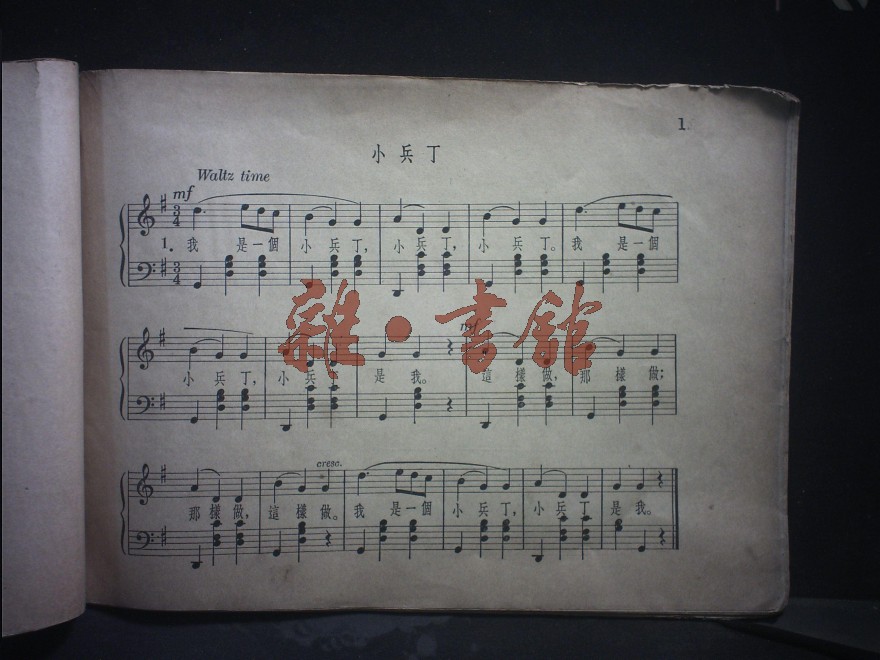 1.
小兵丁
Waltz time
mf
3 4 3 4
1. 我 是一個 小兵丁, 小兵丁, 小兵丁。 我 是一個
雜·書館
mf
小兵丁, 小兵 是我。 這樣做, 那樣做;
cresc.
那樣做, 這樣做。 我 是一個 小兵丁, 小兵丁 是我。